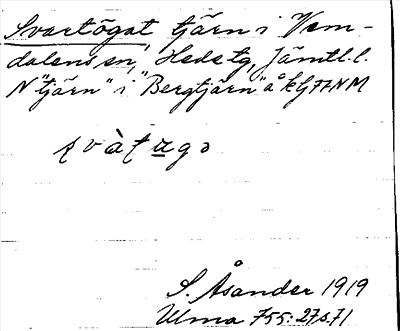 Svartögat tjärn i Vem-
dalens sn, Hede tg, Jämtl. l.
N "tjärn" i "Bergtjärn" å k G77NM
S. Åsander 1919
Ulma 755: 27 s. 71